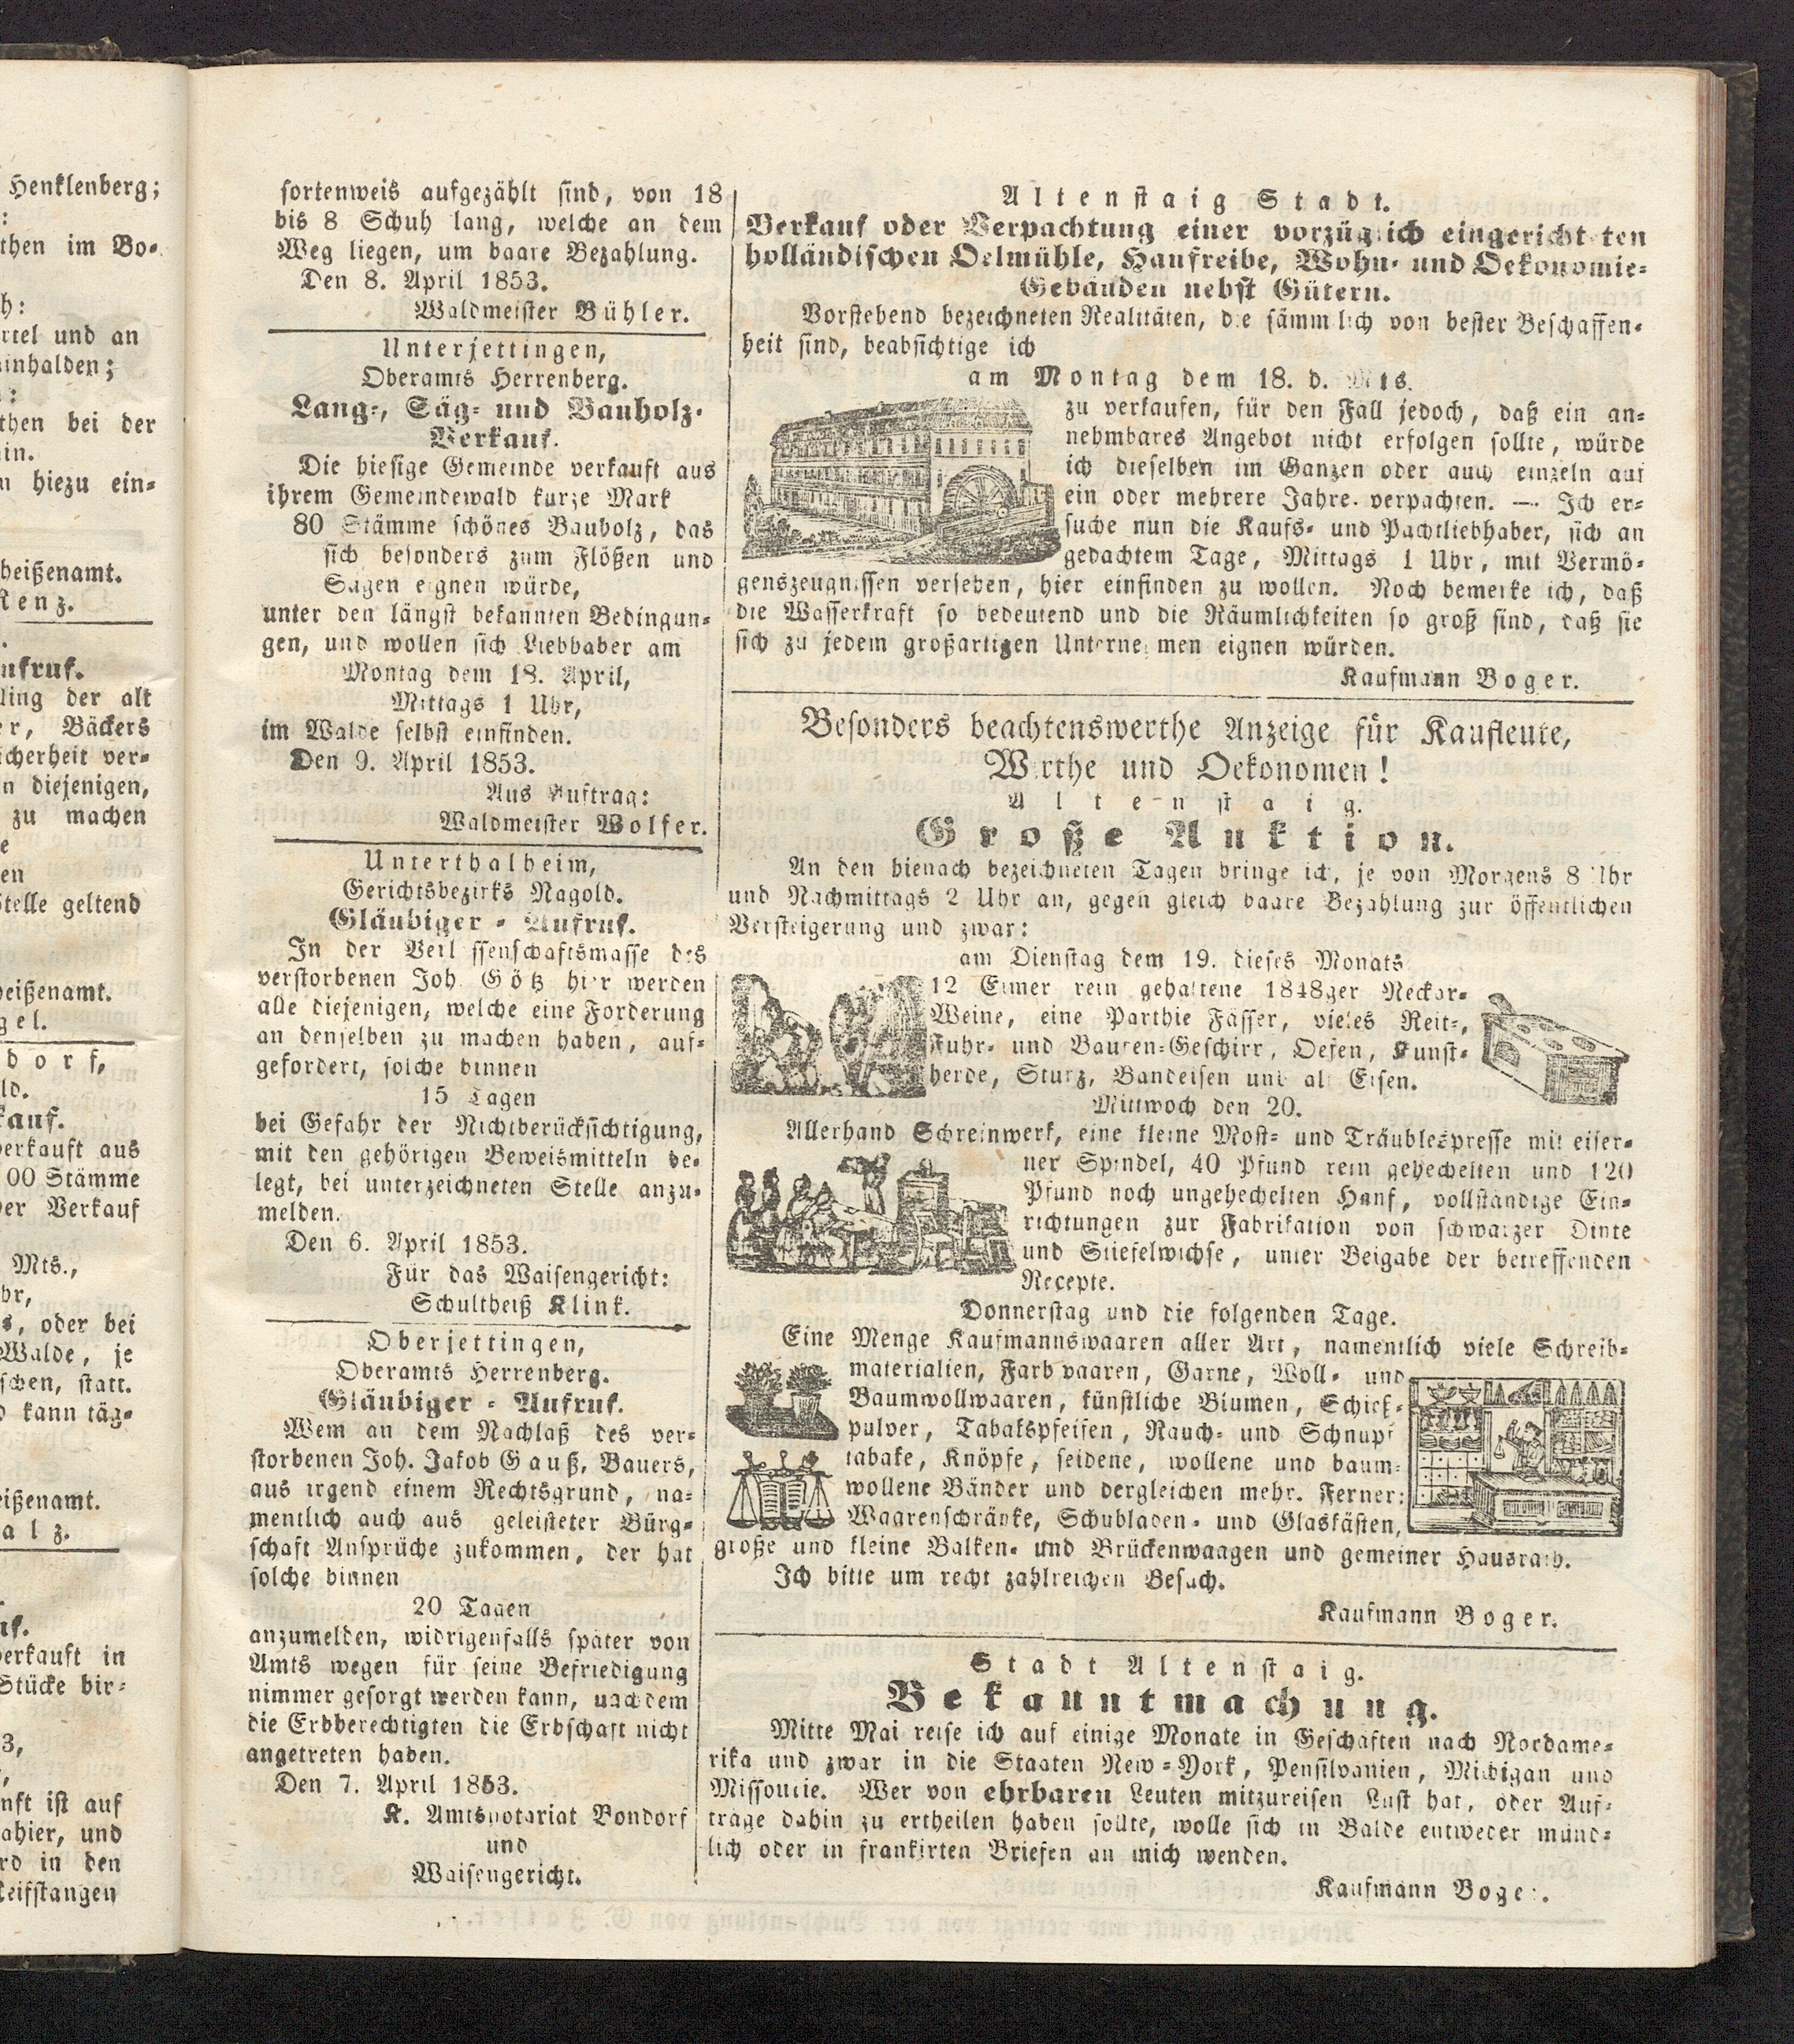 Henklenberg;
:
then im Bo-
h:
rtel und an
inhalden;
:
then bei der
in.
n hiezu ein-
heißenamt.
Renz.
ufruf.
ling der alt
er, Bäckers
icherheit ver-
n diejenigen,
zu machen
e
en
Stelle geltend
heißenamt.
gel.
dorf,
ld.
kauf.
verkauft aus
00 Stämme
der Verkauf
Mts.,
hr,
s, oder bei
Walde, je
schen, statt.
d kann täg-
eißenamt.
alz.
uf.
verkauft in
Stücke bir-
3,
nft ist auf
ahier, und
rd in den
Reifstangen
sortenweis aufgezählt sind, von 18
bis 8 Schuh lang, welche an dem
Weg liegen, um baare Bezahlung.
Den 8. April 1853.
Waldmeister Bühler.
Unterjettingen,
Oberamts Herrenberg.
Lang-, Säg- und Bauholz-
Verkauf.
Die hiesige Gemeinde verkauft aus
ihrem Gemeindewald kurze Mark
80 Stämme schönes Bauholz, das
sich besonders zum Flößen und
Sägen eignen würde,
unter den längst bekannten Bedingun-
gen, und wollen sich Liebhaber am
Montag dem 18. April,
Mittags 1 Uhr,
im Walde selbst einfinden.
Den 9. April 1853.
Aus Auftrag:
Waldmeister Wolfer.
Unterthalheim,
Gerichtsbezirks Nagold.
Gläubiger-Aufruf.
In der Verlassenschaftsmasse des
verstorbenen Joh. Götz hier werden
alle diejenigen, welche eine Forderung
an denselben zu machen haben, auf-
gefordert, solche binnen
15 Tagen
bei Gefahr der Nichtberücksichtigung,
mit den gehörigen Beweismitteln be-
legt, bei unterzeichneten Stelle anzu-
melden.
Den 6. April 1853.
Für das Waisengericht:
Schultheiß Klink.
Oberjettingen,
Oberamts Herrenberg.
Gläubiger-Aufruf.
Wem an dem Nachlaß des ver-
storbenen Joh. Jakob Gauß, Bauers,
aus irgend einem Rechtsgrund, na-
mentlich auch aus geleisteter Bürg-
schaft Ansprüche zukommen, der hat
solche binnen
20 Tagen
anzumelden, widrigenfalls später von
Amts wegen für seine Befriedigung
nimmer gesorgt werden kann, nachdem
die Erbberechtigten die Erbschaft nicht
angetreten haben.
Den 7. April 1853.
K. Amtsnotariat Bondorf
und
Waisengericht.
Altenstaig Stadt.
Verkauf oder Verpachtung einer vorzüglich eingerichteten
holländischen Oelmühle, Hanfreibe, Wohn- und Oekonomie-
Gebäuden nebst Gütern.
Vorstehend bezeichneten Realitäten, die sämmtlich von bester Beschaffen-
heit sind, beabsichtige ich
am Montag dem 18. d. Mts.
zu verkaufen, für den Fall jedoch, daß ein an-
nehmbares Angebot nicht erfolgen sollte, würde
ich dieselben im Ganzen oder auch einzeln auf
ein oder mehrere Jahre verpachten. — Ich er-
suche nun die Kaufs- und Pachtliebhaber, sich an
gedachtem Tage, Mittags 1 Uhr, mit Vermö-
genszeugnissen versehen, hier einfinden zu wollen. Noch bemerke ich, daß
die Wasserkraft so bedeutend und die Räumlichkeiten so groß sind, daß sie
sich zu jedem großartigen Unternehmen eignen würden.
Kaufmann Boger.
Besonders beachtenswerthe Anzeige für Kaufleute,
Wirthe und Oekonomen!
Altenstaig.
Große Auktion.
An den hienach bezeichneten Tagen bringe ich, je von Morgens 8 Uhr
und Nachmittags 2 Uhr an, gegen gleich baare Bezahlung zur öffentlichen
Versteigerung und zwar:
am Dienstag dem 19. dieses Monats
12 Eimer rein gehaltene 1848ger Neckar-
Weine, eine Parthie Fässer, vieles Reit-,
Fuhr- und Bauren-Geschirr, Oefen, Kunst-
herde, Sturz, Bandeisen und alt Eisen.
Mittwoch den 20.
Allerhand Schreinwerk, eine kleine Most- und Träublespresse mit eiser-
ner Spindel, 40 Pfund rein gehechelten und 120
Pfund noch ungehechelten Hanf, vollständige Ein-
richtungen zur Fabrikation von schwarzer Dinte
und Stiefelwichse, unter Beigabe der betreffenden
Recepte.
Donnerstag und die folgenden Tage.
Eine Menge Kaufmannswaaren aller Art, namentlich viele Schreib-
materialien, Farbwaaren, Garne, Woll- und
Baumwollwaaren, künstliche Blumen, Schieß-
pulver, Tabakspfeifen, Rauch- und Schnupf
tabake, Knöpfe, seidene, wollene und baum-
wollene Bänder und dergleichen mehr. Ferner:
Waarenschränke, Schubladen- und Glaskästen,
große und kleine Balken- und Brückenwaagen und gemeiner Hausrath.
Ich bitte um recht zahlreichen Besuch.
Kaufmann Boger.
Stadt Altenstaig.
Bekanntmachung.
Mitte Mai reise ich auf einige Monate in Geschäften nach Nordame-
rika und zwar in die Staaten New-York, Pensilvanien, Michigan und
Missourie. Wer von ehrbaren Leuten mitzureisen Lust hat, oder Auf-
träge dahin zu ertheilen haben sollte, wolle sich in Balde entweder münd-
lich oder in frankirten Briefen an mich wenden.
Kaufmann Boger.